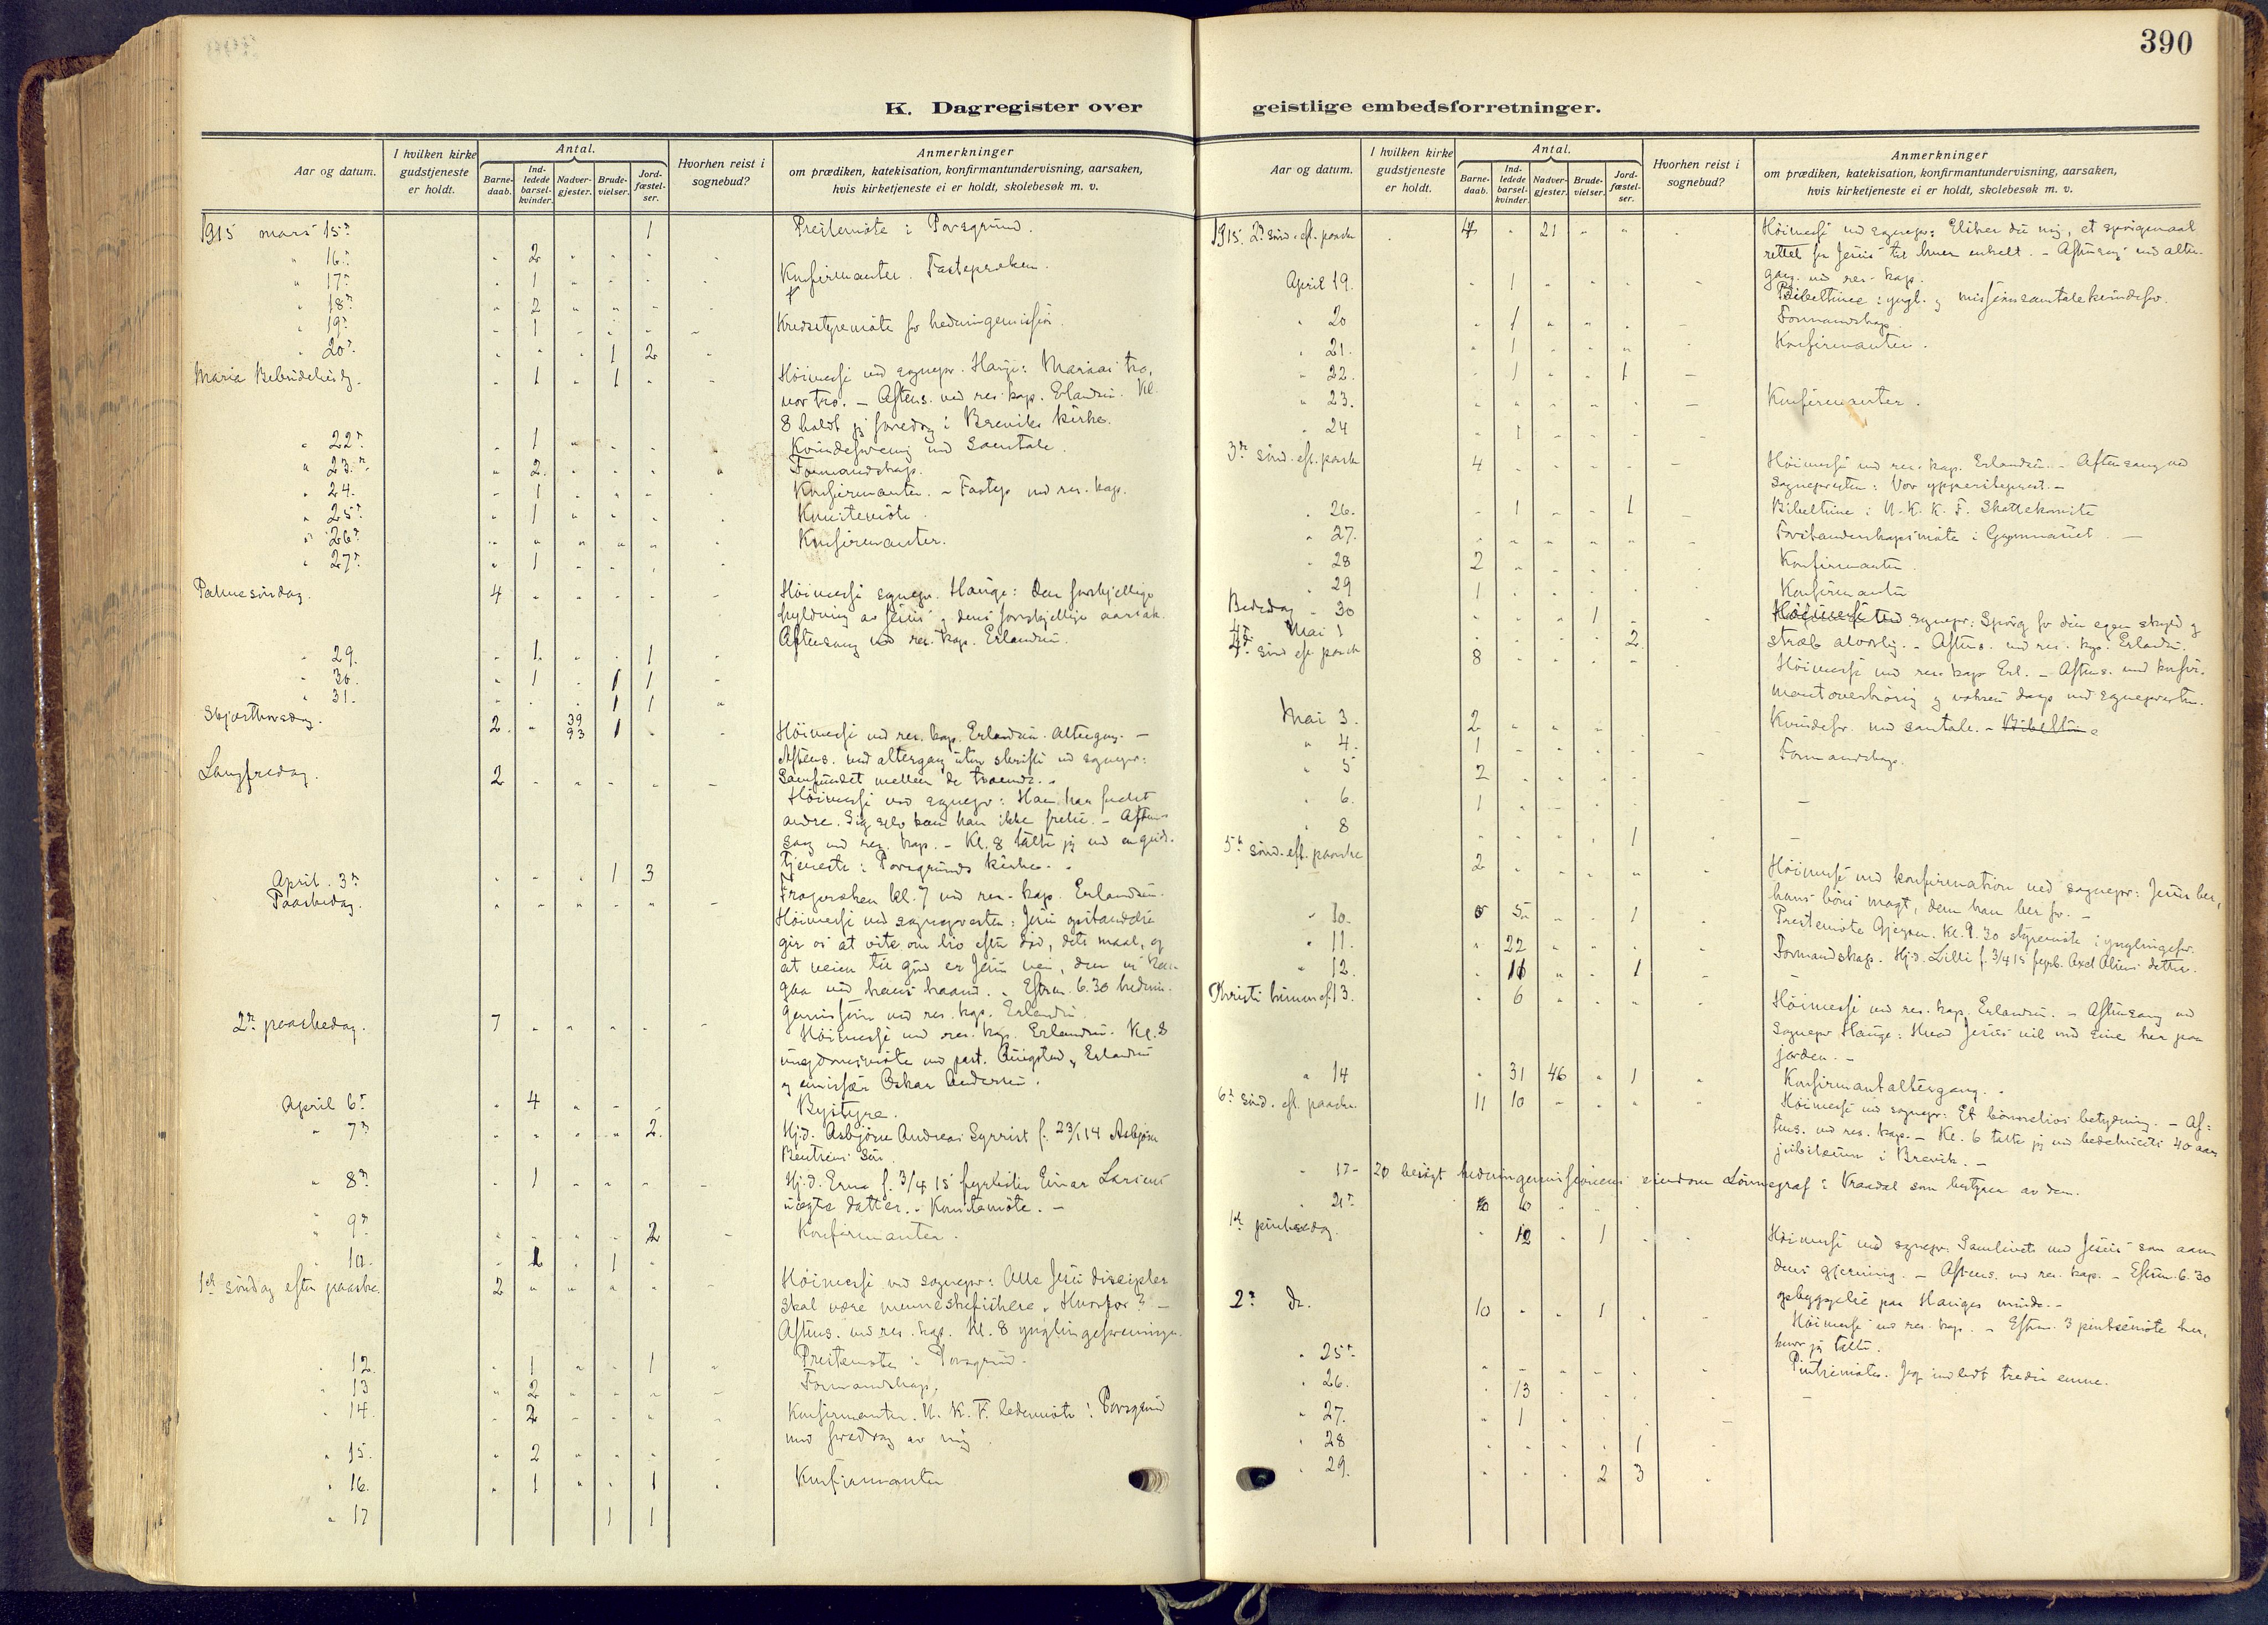 390
K. Dagregister over
Aar og datum.
I hvilken kirke gudstjeneste er holdt.
Antal.
Barne-daab.
Ind-ledede barsel-kvinder.
Nadver-gjester.
Brude-vielser.
Jord-fæstel-ser.
Hvorhen reist i sognebud?
Anmerkninger
om prædiken, katekisation, konfirmantundervisning, aarsaken,
hvis kirketjeneste ei er holdt, skolebesøk m. v.
1915 mars 15de 1 Prestemøte i Porsgrund.
" 16de 2
" 17de 1 Konfirmanter. Fasteprøken.
" 18de 2
" 19de 1 Kredsstyremøte for hedningemission.
" 20de 1 2
Maria Bebudelsesdg. 1 1 Høimesse ved sognepr. Hauge: Marias tro,
vor tro. – Aftens. ved res. kap. Erlandsen. Kl.
8 holdt jeg foredrag i Breviks kirke.
" 22de 1 Kvindeforening med samtale.
" 23de 2 Formandskap.
" 24. 1 Konfirmanter. – Fastep. ved res. kap.
" 25de 1
" 26de Konfirmanter.
" 27de 1
Palmesøndag. 4 Høimesse sognepr. Hauge: Den forskjellige
hyldning av Jesus og dens forskjellige aarsak.
Aftensang ved res. kap. Erlandsen.
" 29. 1 1
" 30. 1 1 1
" 31. 1 1
Skjærthorsdag. 2 39 93 1 Høimesse ved res. kap. Erlandsen. Altergang. –
Aftens. med altergang uten skrifte ved sognepr:
Samfundet mellem de troende. –
Langfredag. 2
Høimesse ved sognepr: Han har frelst
andre. Sig selv kan han ikke frelse. – Aften-
sang ved res. kap. – Kl. 8 talte jeg ved en guds-
tjeneste i Porsgrunds kirke. –
April. 3de 1 3
Paaskedag. Froprøken kl. 7 ved res. kap. Erlandsen.
Høimesse ved sognepresten: Jesu opstandelse
gir os at vite om liv efter død, dets maal, og
at veien til gud er Jesu vei, den vi kan
gaa ved hans haand. – Efterm. 6.30 hednin-
gemission ved res. kap. Erlandsen.
2den paaskedag. 7
Høimesse ved res. kap. Erlandsen. Kl. 8
ungdomsmøte ved past. Ringstad, Erlandsen
og emissær Oskar Andersen.
April 6te 4 Bystyre.
" 7de 2. Hj.d. Asbjørn Andreas Syrrist f. 23/1 14 Asbjørn
Bentsens søn.
" 8de 1 Hj.d. Erna f. 3/4 15 fyrbøter Einar Larsens
uegte datter. –
" 9de 2 Konfirmanter.
" 10. 1 1
1ste søndag efter paaske. 2 Høimesse ved sognepr: Alle Jesu disciple
skal være menneskefiskere. Hvorfor? –
Aftens. ved res. kap. Kl. 8 ynglingeforeningen.
" 12 1 1 Prestemøte i Porsgrund.
" 13 2 Formandskap.
" 14. 2 Konfirmanter. U. K. F. ledermøte i Porsgrund
med foredrag av mig.
" 15. 2
" 16. 1 1 Konfirmanter
" 17 1 1
geistlige embedsforretninger.
Aar og datum.
I hvilken kirke gudstjeneste er holdt.
Antal.
Barne-daab.
Ind-ledede barsel-kvinder.
Nadver-gjester.
Brude-vielser.
Jord-fæstel-ser.
Hvorhen reist i sognebud?
Anmerkninger
om prædiken, katekisation, konfirmantundervisning, aarsaken,
hvis kirketjeneste ei er holdt, skolebesøk m. v.
1915. 2den sønd. eft. paaske 4 21 Høimesse ved sognepr: Elsker du mig, et spørgsmaal
rettet fra Jesus til hver enkelt. – Aftensang med alter-
gang ved res. kap.
April 19. 1 Bibeltime i yngl. og missionssamtale kvindefor.
" 20 1 Formandskap
" 21. 1 Konfirmanter.
" 22. 1 1
" 23. Konfirmanter.
" 24 1
3die sønd. eft. paaske 4 Høimesse ved res. kap. Erlandsen. – Aftensang ved
sognepresten: Vor ypperstepræst. –
" 26. 1 1 Bibeltime i U. K. K. F. Skattekomite
" 27. Forstanderskapsmøte i Gymnasiet. –
" 28 2 Konfirmanter.
" 29 1 Konfirmanter
Bededag " 30 1 Høimesse ved sognepr: Spørg for din egen skyld og
stræb alvorlig. – Aftens. ved res. kap. Erlandsen.
Mai 1 2
4de sønd eft. paaske 8 Høimesse ved res. kap Erl. – Aftens. med konfir-
mantoverhøring og voksen daap ved sognepresten.
Mai 3. 2 Kvindefor. med samtale. – Bibeltime
" 4. 1 Formandskap.
" 5 2
" 6. 1 –
" 8 1 –
5te sønd. eft. paaske 2 Høimesse med konfirmation ved sognepr: Jesus ber,
hans bøns magt, dem han ber for. –
" 10. 5 1 Prestemøte Gjerpen. Kl. 9.30 styremøte i ynglingefor.
" 11. 22 Formandskap. Hj.d. Lilli f. 3/4 15 fyrb. Axel Olsens datter.
" 12. 11 1 –
Kristi himmelf. 13. 6 Høimesse ved res. kap. Erlandsen. – Aftensang ved
sognepr Hauge: Hvad Jesus vil med sine her paa
jorden. –
" 14 31 46 1 Konfirmantaltergang. –
6te sønd. eft. paaske 11 10 Høimesse ved sognepr: Et bønnelivs betydning. – Af-
tens. ved res. kap. – Kl. 6 talte jeg ved bedehusets 40 aars
jubilæum i Brevik. –
" 17– 20 besøgt hedningemissionens eiendom i Kraadal som bestyrer av den.
" 21de
1ste pinsedag. 12 1 Høimesse ved sognepr. Samlivet med Jesus som aan-
dens gjerning. – Aftens. ved res. kap. – Efterm. 6.30
opbyggelse paa Hauges minde. –
2den do. 10 1 Høimesse ved res. kap. – Efterm. 3 pinsemøte her,
hvor jeg talte.
" 25de Pinsemøte. Jeg indledt tredie emne.
" 26. 13 –
" 27. 1
" 28 1
" 29. 2 3